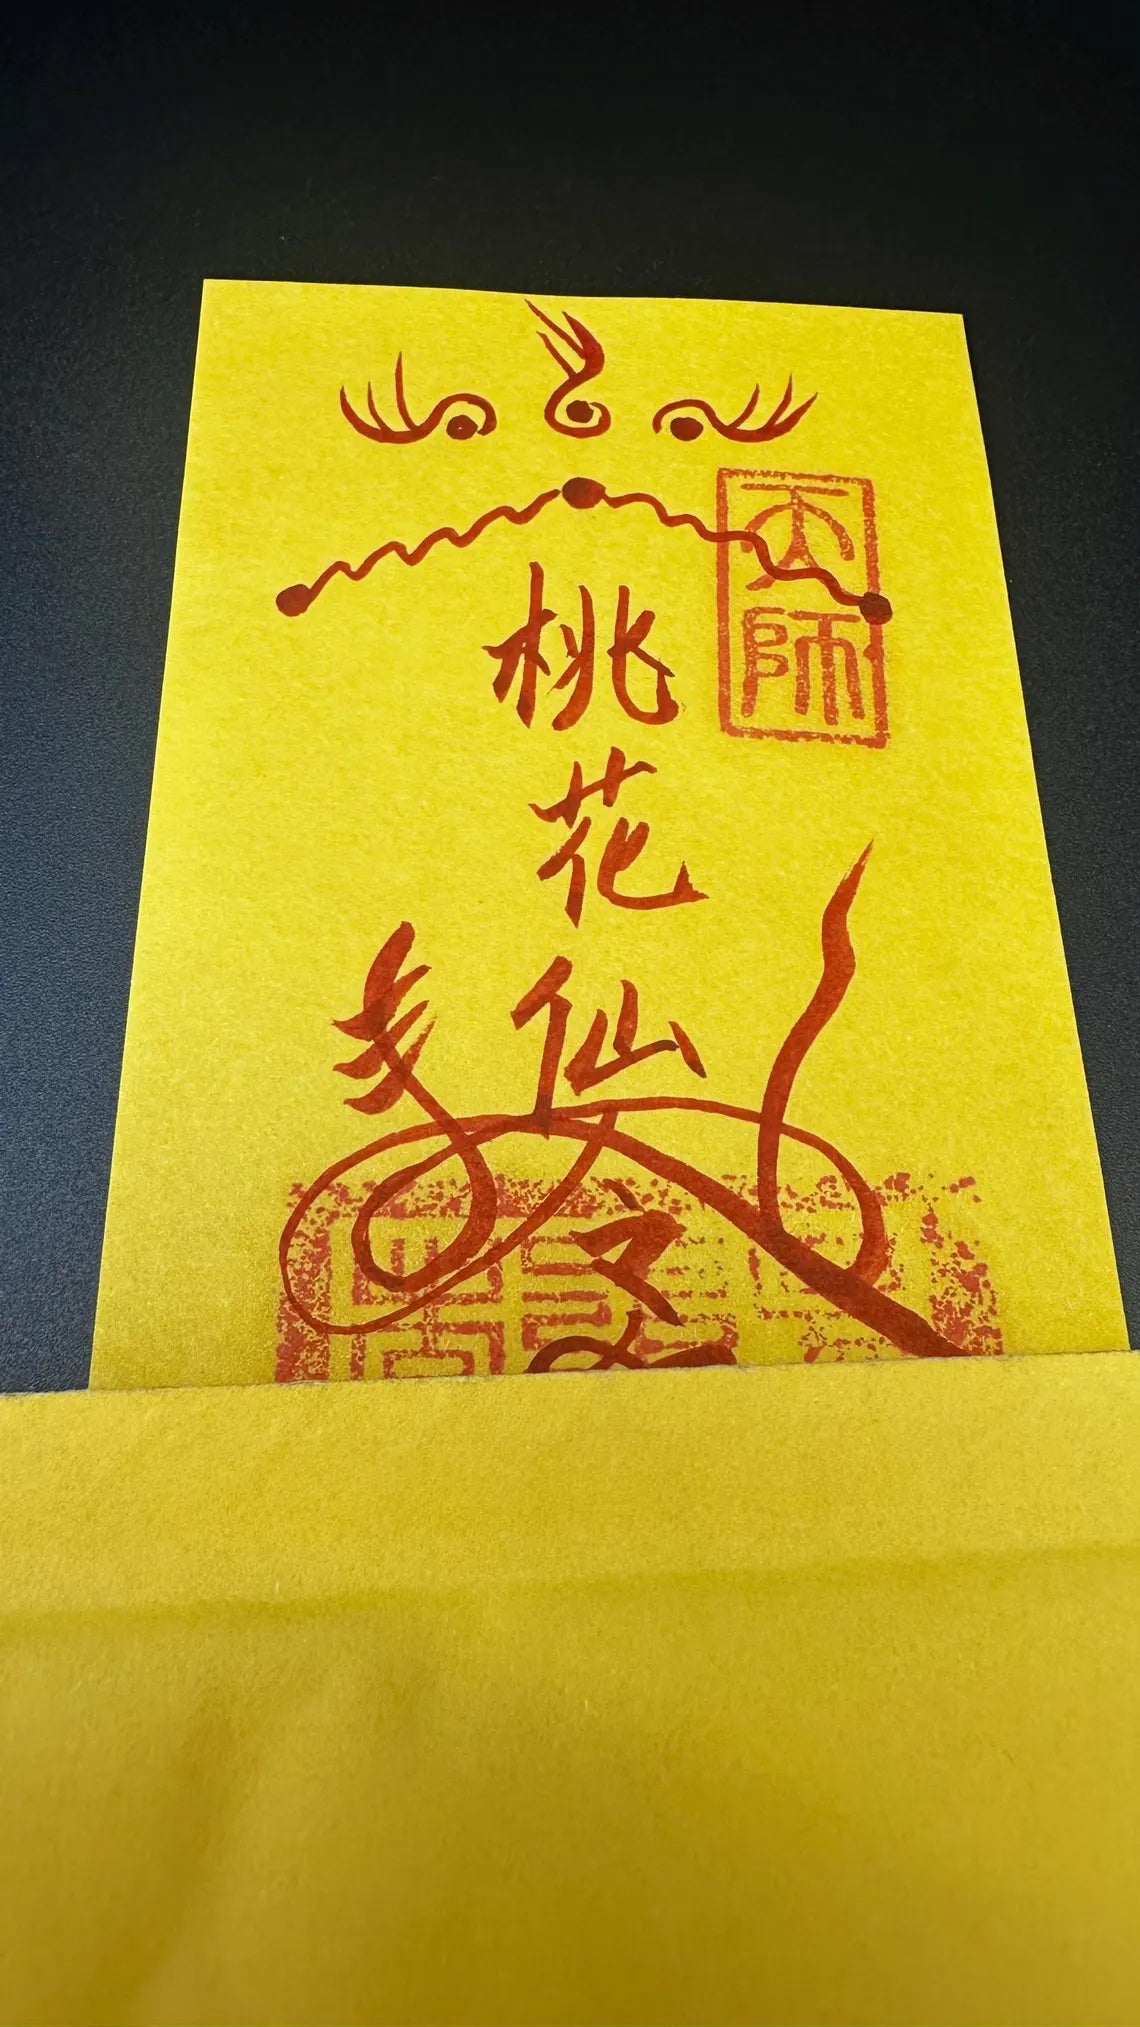 桃花仙令
天師